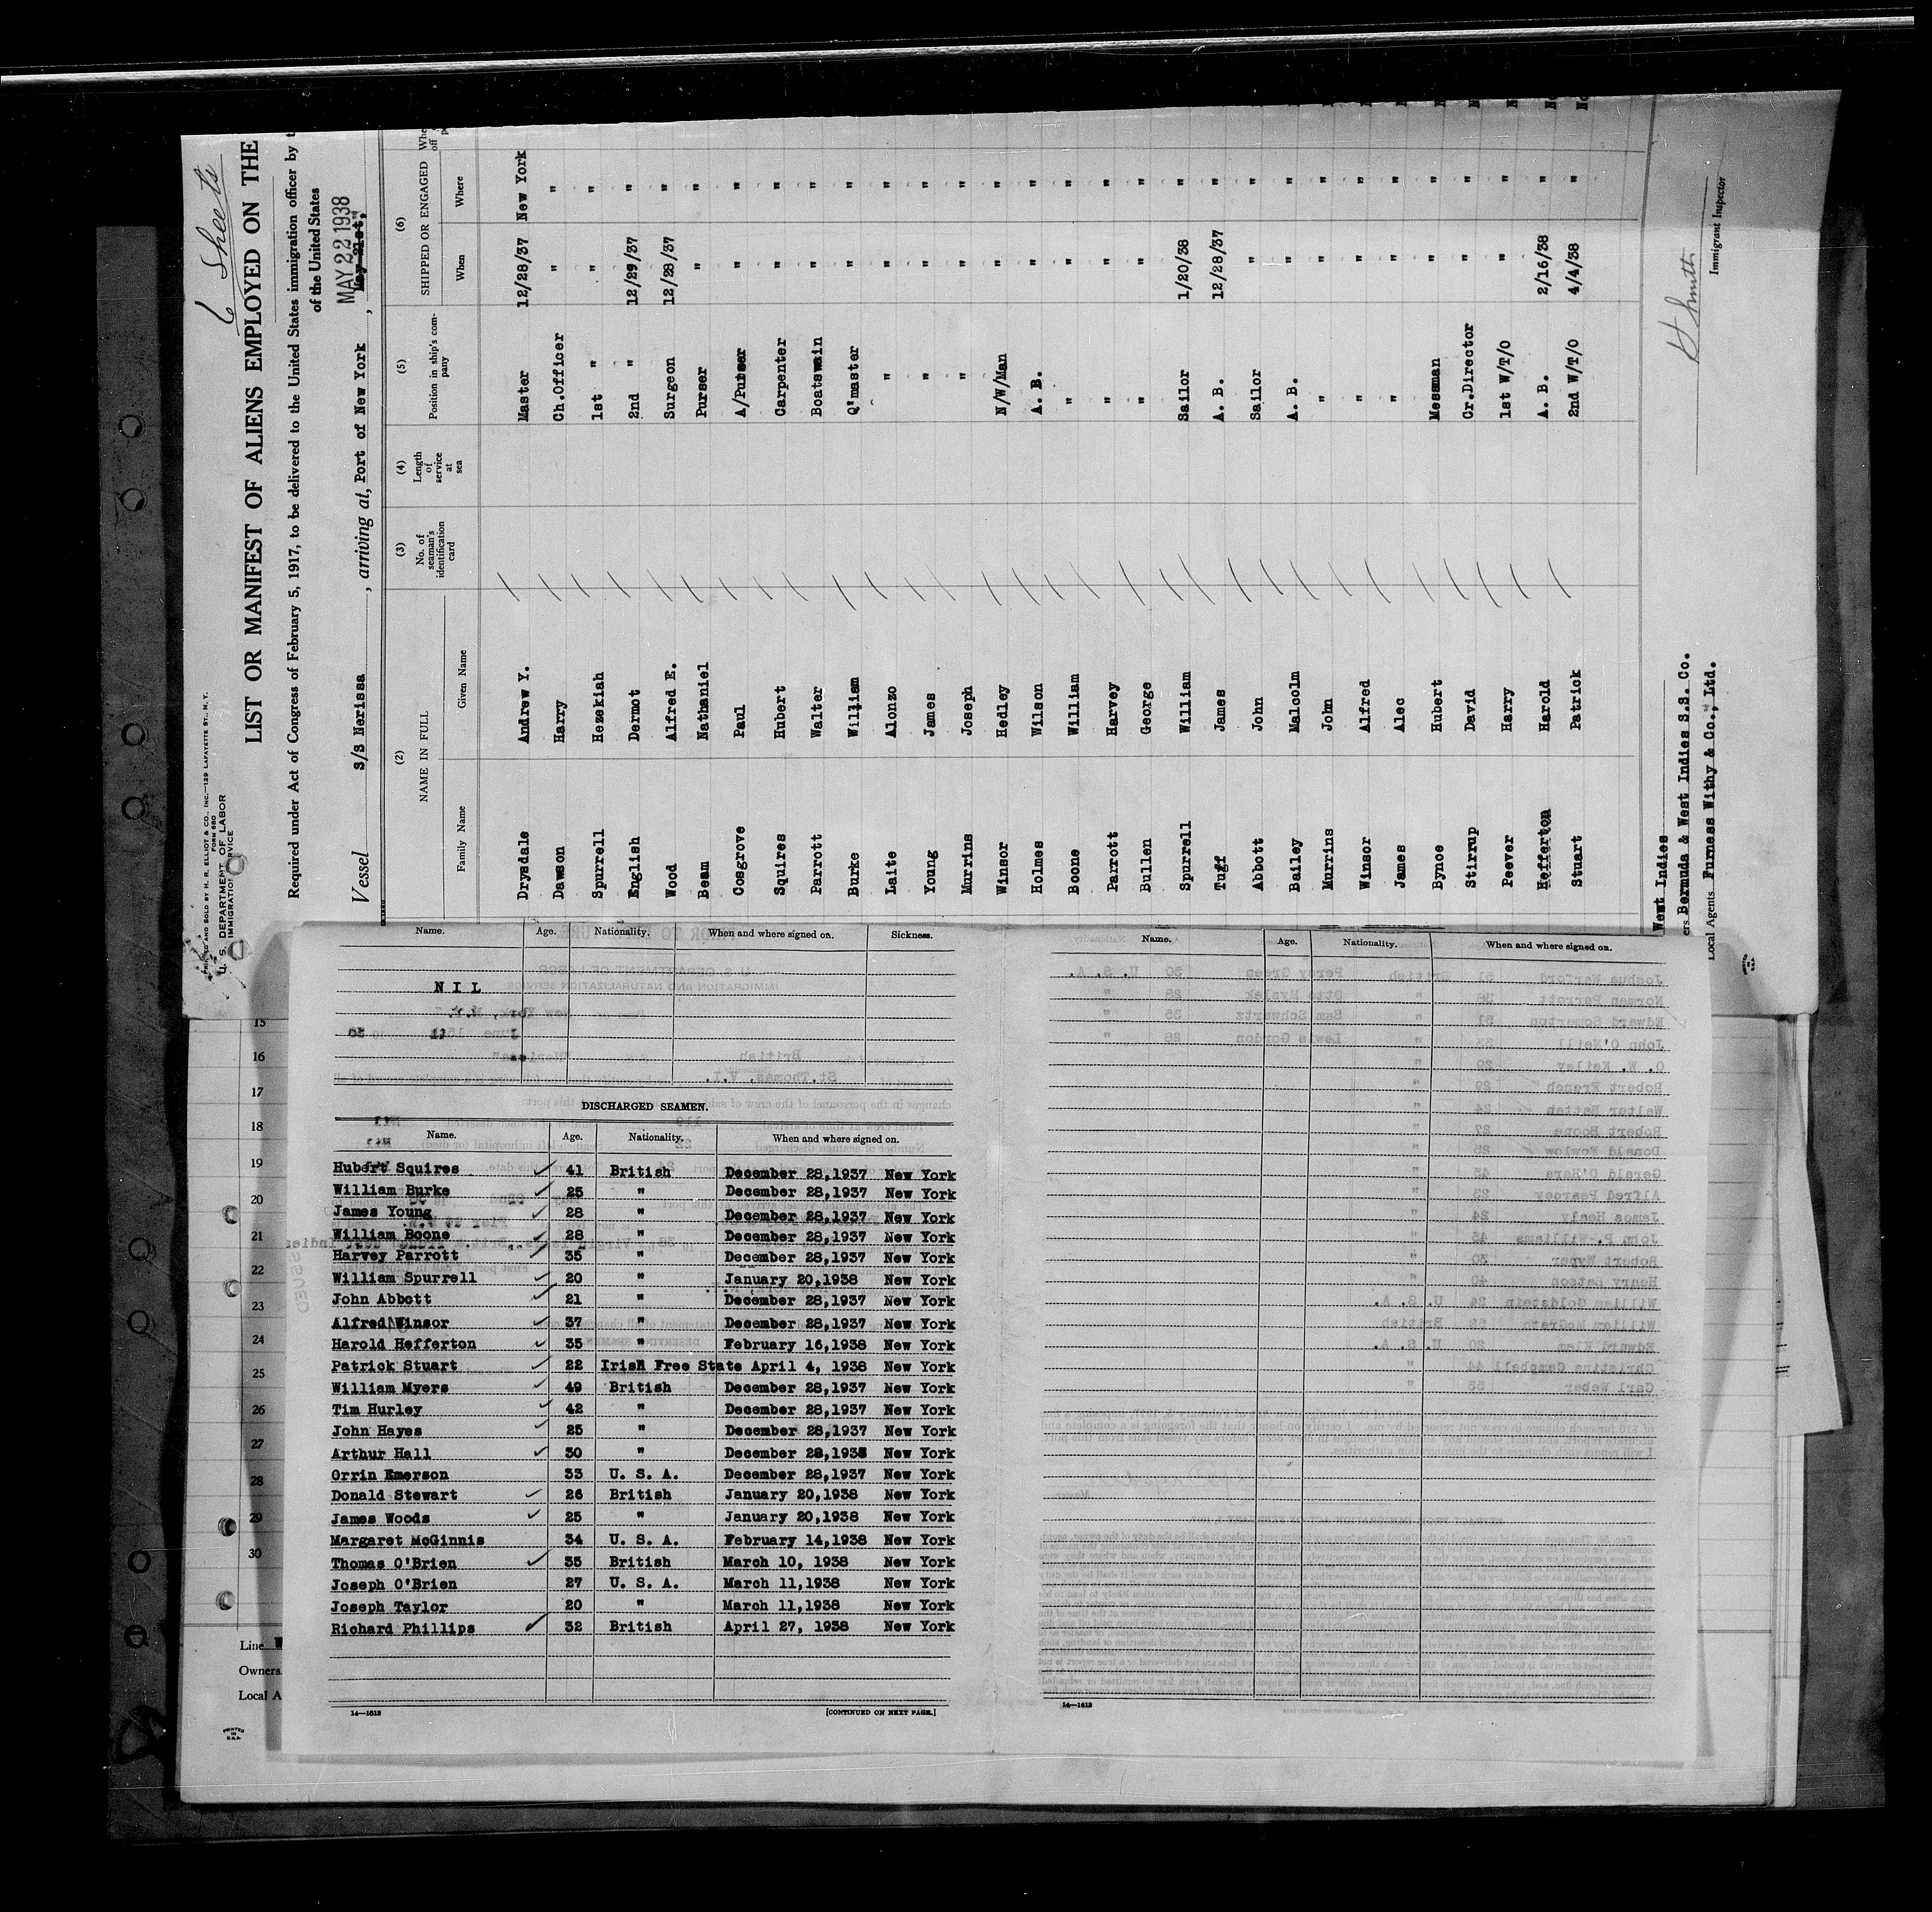 6 Sheets
PRINTED AND SOLD BY H. R. ELLIOT & CO., INC.—129 LAFAYETTE ST., N. Y.
FORM 680
U. S. DEPARTMENT OF LABOR
IMMIGRATION SERVICE
LIST OR MANIFEST OF ALIENS EMPLOYED ON THE
Required under Act of Congress of February 5, 1917, to be delivered to the United States immigration officer by
of the United States
MAY 22 1938
Vessel S/S Nerissa, arriving at, Port of New York, May 21st,
(2) (3) (4) (5) (6)
NAME IN FULL No. of seaman's identification card Length of service at sea Position in ship's company SHIPPED OR ENGAGED
Family Name Given Name When Where
Drysdale Andrew Y. Master 12/28/37 New York
Dawson Harry Ch.Officer " "
Spurrell Hezekiah 1st " " "
English Dermot 2nd " 12/29/37 "
Wood Alfred E. Surgeon 12/28/37 "
Beam Nathaniel Purser " "
Cosgrove Paul A/Purser " "
Squires Hubert Carpenter " "
Parrott Walter Boatswain " "
Burke William Q'master " "
Laite Alonzo " " "
Young James " " "
Murrins Joseph " " "
Winsor Hedley N/W/Man " "
Holmes Wilson A. B. " "
Boone William " " "
Parrott Harvey " " "
Bullen George " " "
Spurrell William Sailor 1/20/38 "
Tuff James A. B. 12/28/37 "
Abbott John Sailor " "
Bailey Malcolm A. B. " "
Murrins John " " "
Winsor Alfred " " "
James Alec " " "
Bynoe Hubert Messman " "
Stirrup David Cr.Director " "
Peever Harry 1st W/T/O " "
Hefferton Harold A. B. 2/16/38 "
Stuart Patrick 2nd W/T/O 4/4/38 "
West Indies
Bermuda & West Indies S.S. Co.
Local Agents Furness Withy & Co., Ltd.
Immigrant Inspector
Name. Age. Nationality. When and where signed on. Sickness.
N I L
DISCHARGED SEAMEN.
Name. Age. Nationality. When and where signed on.
Hubert Squires 41 British December 28,1937 New York
William Burke 25 " December 28,1937 New York
James Young 28 " December 28,1937 New York
William Boone 28 " December 28,1937 New York
Harvey Parrott 35 " December 28,1937 New York
William Spurrell 20 " January 20,1938 New York
John Abbott 21 " December 28,1937 New York
Alfred Winsor 37 " December 28,1937 New York
Harold Hefferton 35 " February 16,1938 New York
Patrick Stuart 22 Irish Free State April 4, 1938 New York
William Myers 49 British December 28,1937 New York
Tim Hurley 42 " December 28,1937 New York
John Hayes 25 " December 28,1937 New York
Arthur Hall 30 " December 28,1938 New York
Orrin Emerson 33 U. S. A. December 28,1937 New York
Donald Stewart 26 British January 20,1938 New York
James Woods 25 " January 20,1938 New York
Margaret McGinnis 34 U. S. A. February 14,1938 New York
Thomas O'Brien 35 British March 10, 1938 New York
Joseph O'Brien 27 U. S. A. March 11,1938 New York
Joseph Taylor 20 " March 11,1938 New York
Richard Phillips 32 British April 27, 1938 New York
14—1613 [CONTINUED ON NEXT PAGE.]
Name. Age. Nationality. When and where signed on.
14—1613
15
16
17
18
19
20
21
22
23
24
25
26
27
28
29
30
Line W
Owners
Local A
PRINTED
IN
U.S.A.